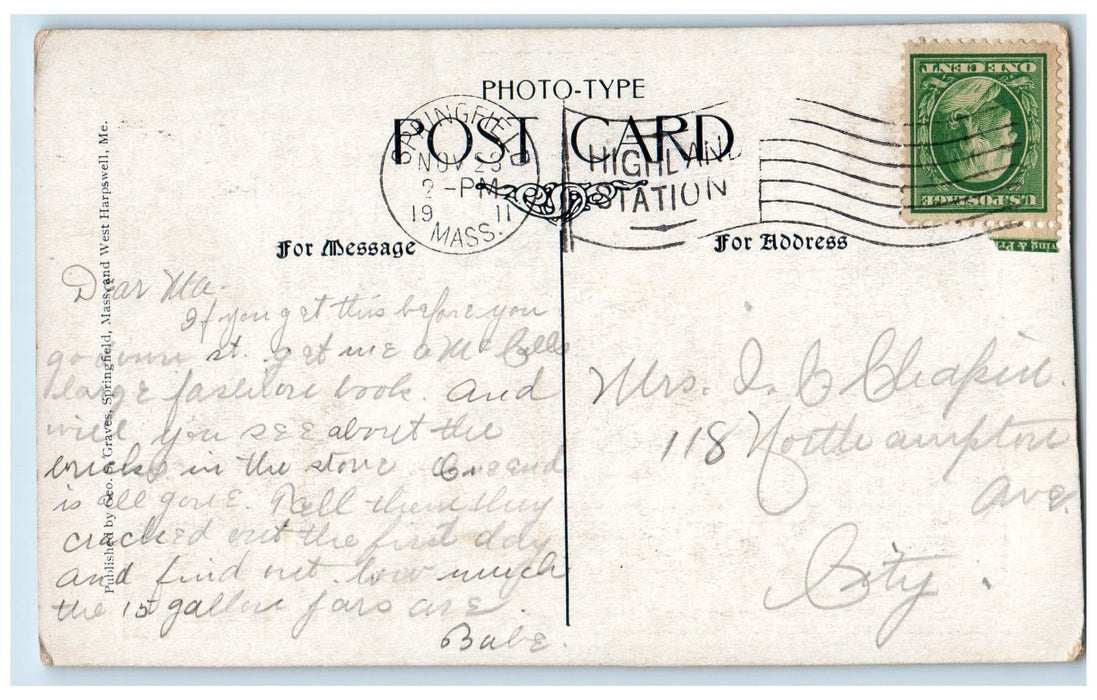 PHOTO-TYPE
POST CARD
SPRINGFIELD
NOV 23
2-PM
19 11
MASS.
HIGHLAND
STATION
U.S. POSTAGE
ONE CENT
For Message
For Address
Published by Geo. S. Graves, Springfield, Mass. and West Harpswell, Me.
Dear Ma.
If you get this before you
go down st. get me a Mc Calls
large fashion book. And
will you see about the
bricks in the stove. One end
is all gone. Tell them they
cracked out the first day
and find out how much
the 15 gallon jars are.
Babe.
Mrs. I. L. Chapin.
118 Northampton
Ave.
City.